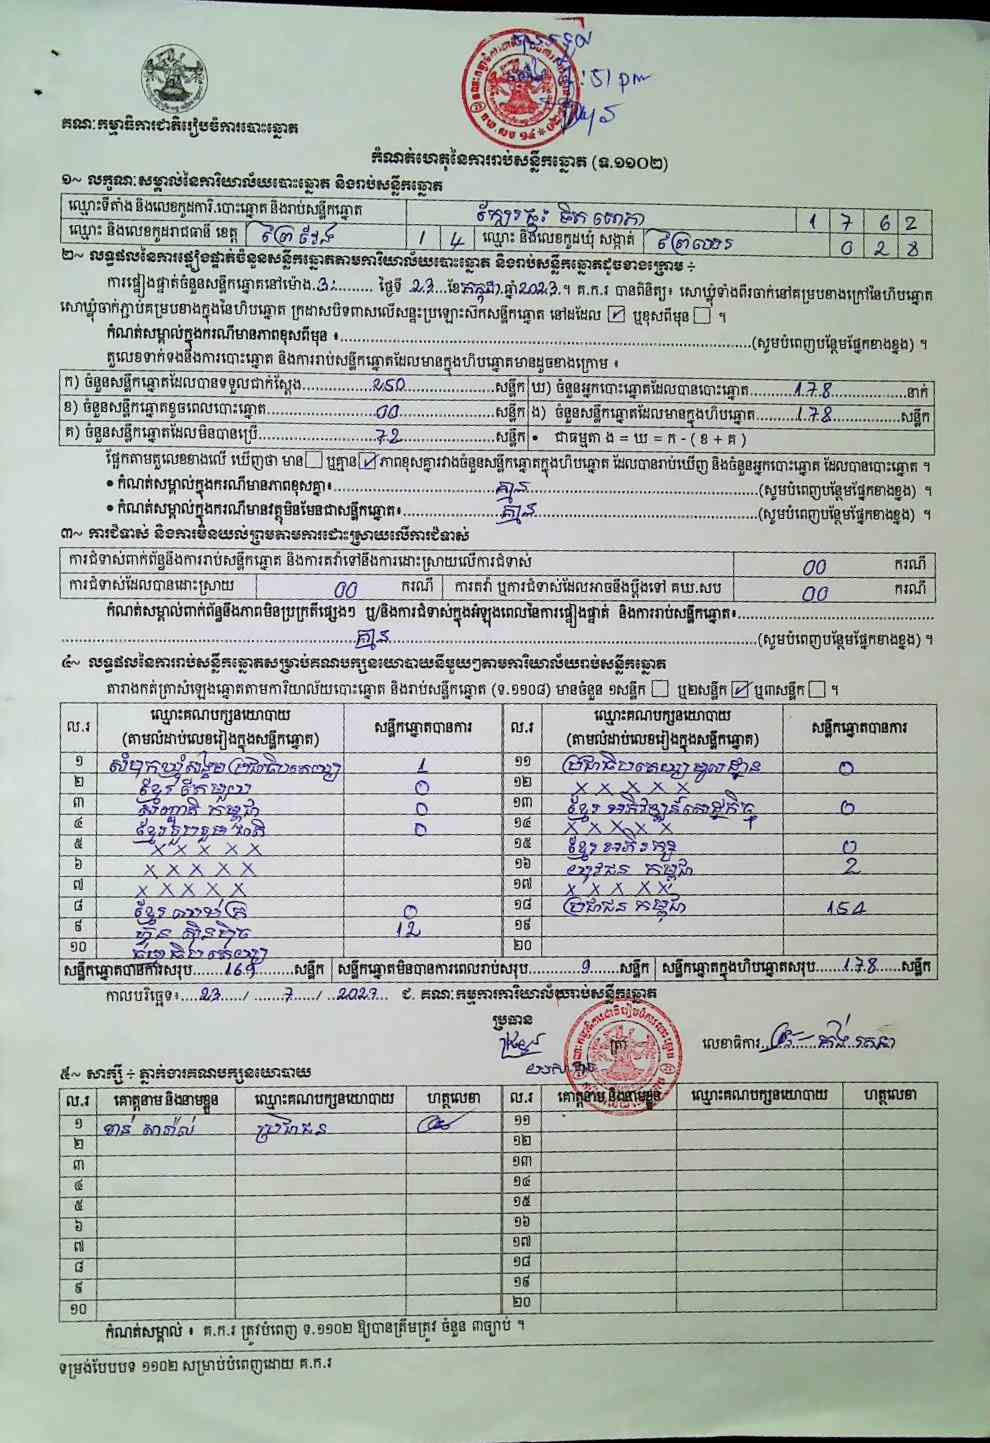 គណៈកម្មាធិការជាតិរៀបចំការបោះឆ្នោត
: 51 pm
កំណត់ហេតុនៃការរាប់សន្លឹកឆ្នោត (ទ.១១០២)
១~ លក្ខណៈសម្គាល់នៃការិយាល័យបោះឆ្នោត និងរាប់សន្លឹកឆ្នោត
ឈ្មោះទីតាំង និងលេខកូដការិ.បោះឆ្នោត និងរាប់សន្លឹកឆ្នោត 1 7 6 2
ឈ្មោះ និងលេខកូដរាជធានី ខេត្ត ព្រៃវែង 1 4 ឈ្មោះ និងលេខកូដឃុំ សង្កាត់ 0 2 8
២~ លទ្ធផលនៃការផ្ទៀងផ្ទាត់ចំនួនសន្លឹកឆ្នោតតាមការិយាល័យបោះឆ្នោត និងរាប់សន្លឹកឆ្នោតដូចខាងក្រោម ÷
ការផ្ទៀងផ្ទាត់ចំនួនសន្លឹកឆ្នោតនៅម៉ោង.3:......... ថ្ងៃទី 23 ខែកក្កដា ឆ្នាំ2023.។ គ.ក.រ បានពិនិត្យ៖ សោឃ្លុំទាំងពីរចាក់នៅគម្របខាងក្រៅនៃហិបឆ្នោត
សោឃ្លុំចាក់ភ្ជាប់គម្របខាងក្នុងនៃហិបឆ្នោត ក្រដាសបិទពាសលើសន្ទះប្រឡោះស៊កសន្លឹកឆ្នោត នៅដដែល ☑ ឬខុសពីមុន ☐ ។
កំណត់សម្គាល់ក្នុងករណីមានភាពខុសពីមុន ៖ ......(សូមបំពេញបន្ថែមផ្នែកខាងខ្នង) ។
តួលេខទាក់ទងនឹងការបោះឆ្នោត និងការរាប់សន្លឹកឆ្នោតដែលមានក្នុងហិបឆ្នោតមានដូចខាងក្រោម ៖
ក) ចំនួនសន្លឹកឆ្នោតដែលបានទទួលជាក់ស្តែង......250......សន្លឹក ឃ) ចំនួនអ្នកបោះឆ្នោតដែលបានបោះឆ្នោត......178......នាក់
ខ) ចំនួនសន្លឹកឆ្នោតខូចពេលបោះឆ្នោត......00......សន្លឹក ង) ចំនួនសន្លឹកឆ្នោតដែលមានក្នុងហិបឆ្នោត......178......សន្លឹក
គ) ចំនួនសន្លឹកឆ្នោតដែលមិនបានប្រើ......72......សន្លឹក • ជាធម្មតា ង = ឃ = ក - ( ខ + គ )
ផ្អែកតាមតួលេខខាងលើ ឃើញថា មាន☐ ឬគ្មាន☑ ភាពខុសគ្នារវាងចំនួនសន្លឹកឆ្នោតក្នុងហិបឆ្នោត ដែលបានរាប់ឃើញ និងចំនួនអ្នកបោះឆ្នោត ដែលបានបោះឆ្នោត ។
• កំណត់សម្គាល់ក្នុងករណីមានភាពខុសគ្នា៖......គ្មាន......(សូមបំពេញបន្ថែមផ្នែកខាងខ្នង) ។
• កំណត់សម្គាល់ក្នុងករណីមានវត្ថុមិនមែនជាសន្លឹកឆ្នោត៖......គ្មាន......(សូមបំពេញបន្ថែមផ្នែកខាងខ្នង) ។
៣~ ការជំទាស់ និងការមិនយល់ព្រមតាមការដោះស្រាយលើការជំទាស់
ការជំទាស់ពាក់ព័ន្ធនឹងការរាប់សន្លឹកឆ្នោត និងការតវ៉ាទៅនឹងការដោះស្រាយលើការជំទាស់ 00 ករណី
ការជំទាស់ដែលបានដោះស្រាយ 00 ករណី ការតវ៉ា ឬការជំទាស់ដែលអាចនឹងប្តឹងទៅ គឃ.សប 00 ករណី
កំណត់សម្គាល់ពាក់ព័ន្ធនឹងភាពមិនប្រក្រតីផ្សេងៗ ឬ/និងការជំទាស់ក្នុងអំឡុងពេលនៃការផ្ទៀងផ្ទាត់ និងការរាប់សន្លឹកឆ្នោត៖......
......គ្មាន......(សូមបំពេញបន្ថែមផ្នែកខាងខ្នង) ។
៤~ លទ្ធផលនៃការរាប់សន្លឹកឆ្នោតសម្រាប់គណបក្សនយោបាយនីមួយៗតាមការិយាល័យរាប់សន្លឹកឆ្នោត
តារាងកត់ត្រាសំឡេងឆ្នោតតាមការិយាល័យបោះឆ្នោត និងរាប់សន្លឹកឆ្នោត (ទ.១១០៨) មានចំនួន ១សន្លឹក ☐ ឬ២សន្លឹក ☑ ឬ៣សន្លឹក ☐ ។
ល.រ ឈ្មោះគណបក្សនយោបាយ (តាមលំដាប់លេខរៀងក្នុងសន្លឹកឆ្នោត) សន្លឹកឆ្នោតបានការ ល.រ ឈ្មោះគណបក្សនយោបាយ (តាមលំដាប់លេខរៀងក្នុងសន្លឹកឆ្នោត) សន្លឹកឆ្នោតបានការ
១ សំបុកឃ្មុំសង្គមប្រជាធិបតេយ្យ 1 ១១ ប្រជាធិបតេយ្យមូលដ្ឋាន 0
២ ខ្មែរ តែមួយ 0 ១២ X X X X X
៣ សញ្ជាតិ កម្ពុជា 0 ១៣ ខ្មែរ អភិវឌ្ឍន៍សេដ្ឋកិច្ច 0
៤ ខ្មែររួបរួមជាតិ 0 ១៤ X X X X X
៥ X X X X X ១៥ ខ្មែរអភិរក្ស 0
៦ X X X X X ១៦ យុវជន កម្ពុជា 2
៧ X X X X X ១៧ X X X X X
៨ ខ្មែរ ឈប់ក្រ 0 ១៨ ប្រជាជន កម្ពុជា 154
៩ ហ៊្វុនស៊ិនប៉ិច 12 ១៩
១០ ធម្មាធិបតេយ្យ ២០
សន្លឹកឆ្នោតបានការសរុប......169......សន្លឹក សន្លឹកឆ្នោតមិនបានការពេលរាប់សរុប......9......សន្លឹក សន្លឹកឆ្នោតក្នុងហិបឆ្នោតសរុប......178......សន្លឹក
កាលបរិច្ឆេទ៖....23...../ .......7....../ ...2023... ជ. គណៈកម្មការការិយាល័យរាប់សន្លឹកឆ្នោត
ប្រធាន
លេខាធិការ
៥~ សាក្សី ÷ ភ្នាក់ងារគណបក្សនយោបាយ
ល.រ គោត្តនាម និងនាមខ្លួន ឈ្មោះគណបក្សនយោបាយ ហត្ថលេខា ល.រ គោត្តនាម និងនាមខ្លួន ឈ្មោះគណបក្សនយោបាយ ហត្ថលេខា
១ ប្រជាជន ១១
២ ១២
៣ ១៣
៤ ១៤
៥ ១៥
៦ ១៦
៧ ១៧
៨ ១៨
៩ ១៩
១០ ២០
កំណត់សម្គាល់ ៖ គ.ក.រ ត្រូវបំពេញ ទ.១១០២ ឱ្យបានត្រឹមត្រូវ ចំនួន ៣ច្បាប់ ។
ទម្រង់បែបបទ ១១០២ សម្រាប់បំពេញដោយ គ.ក.រ